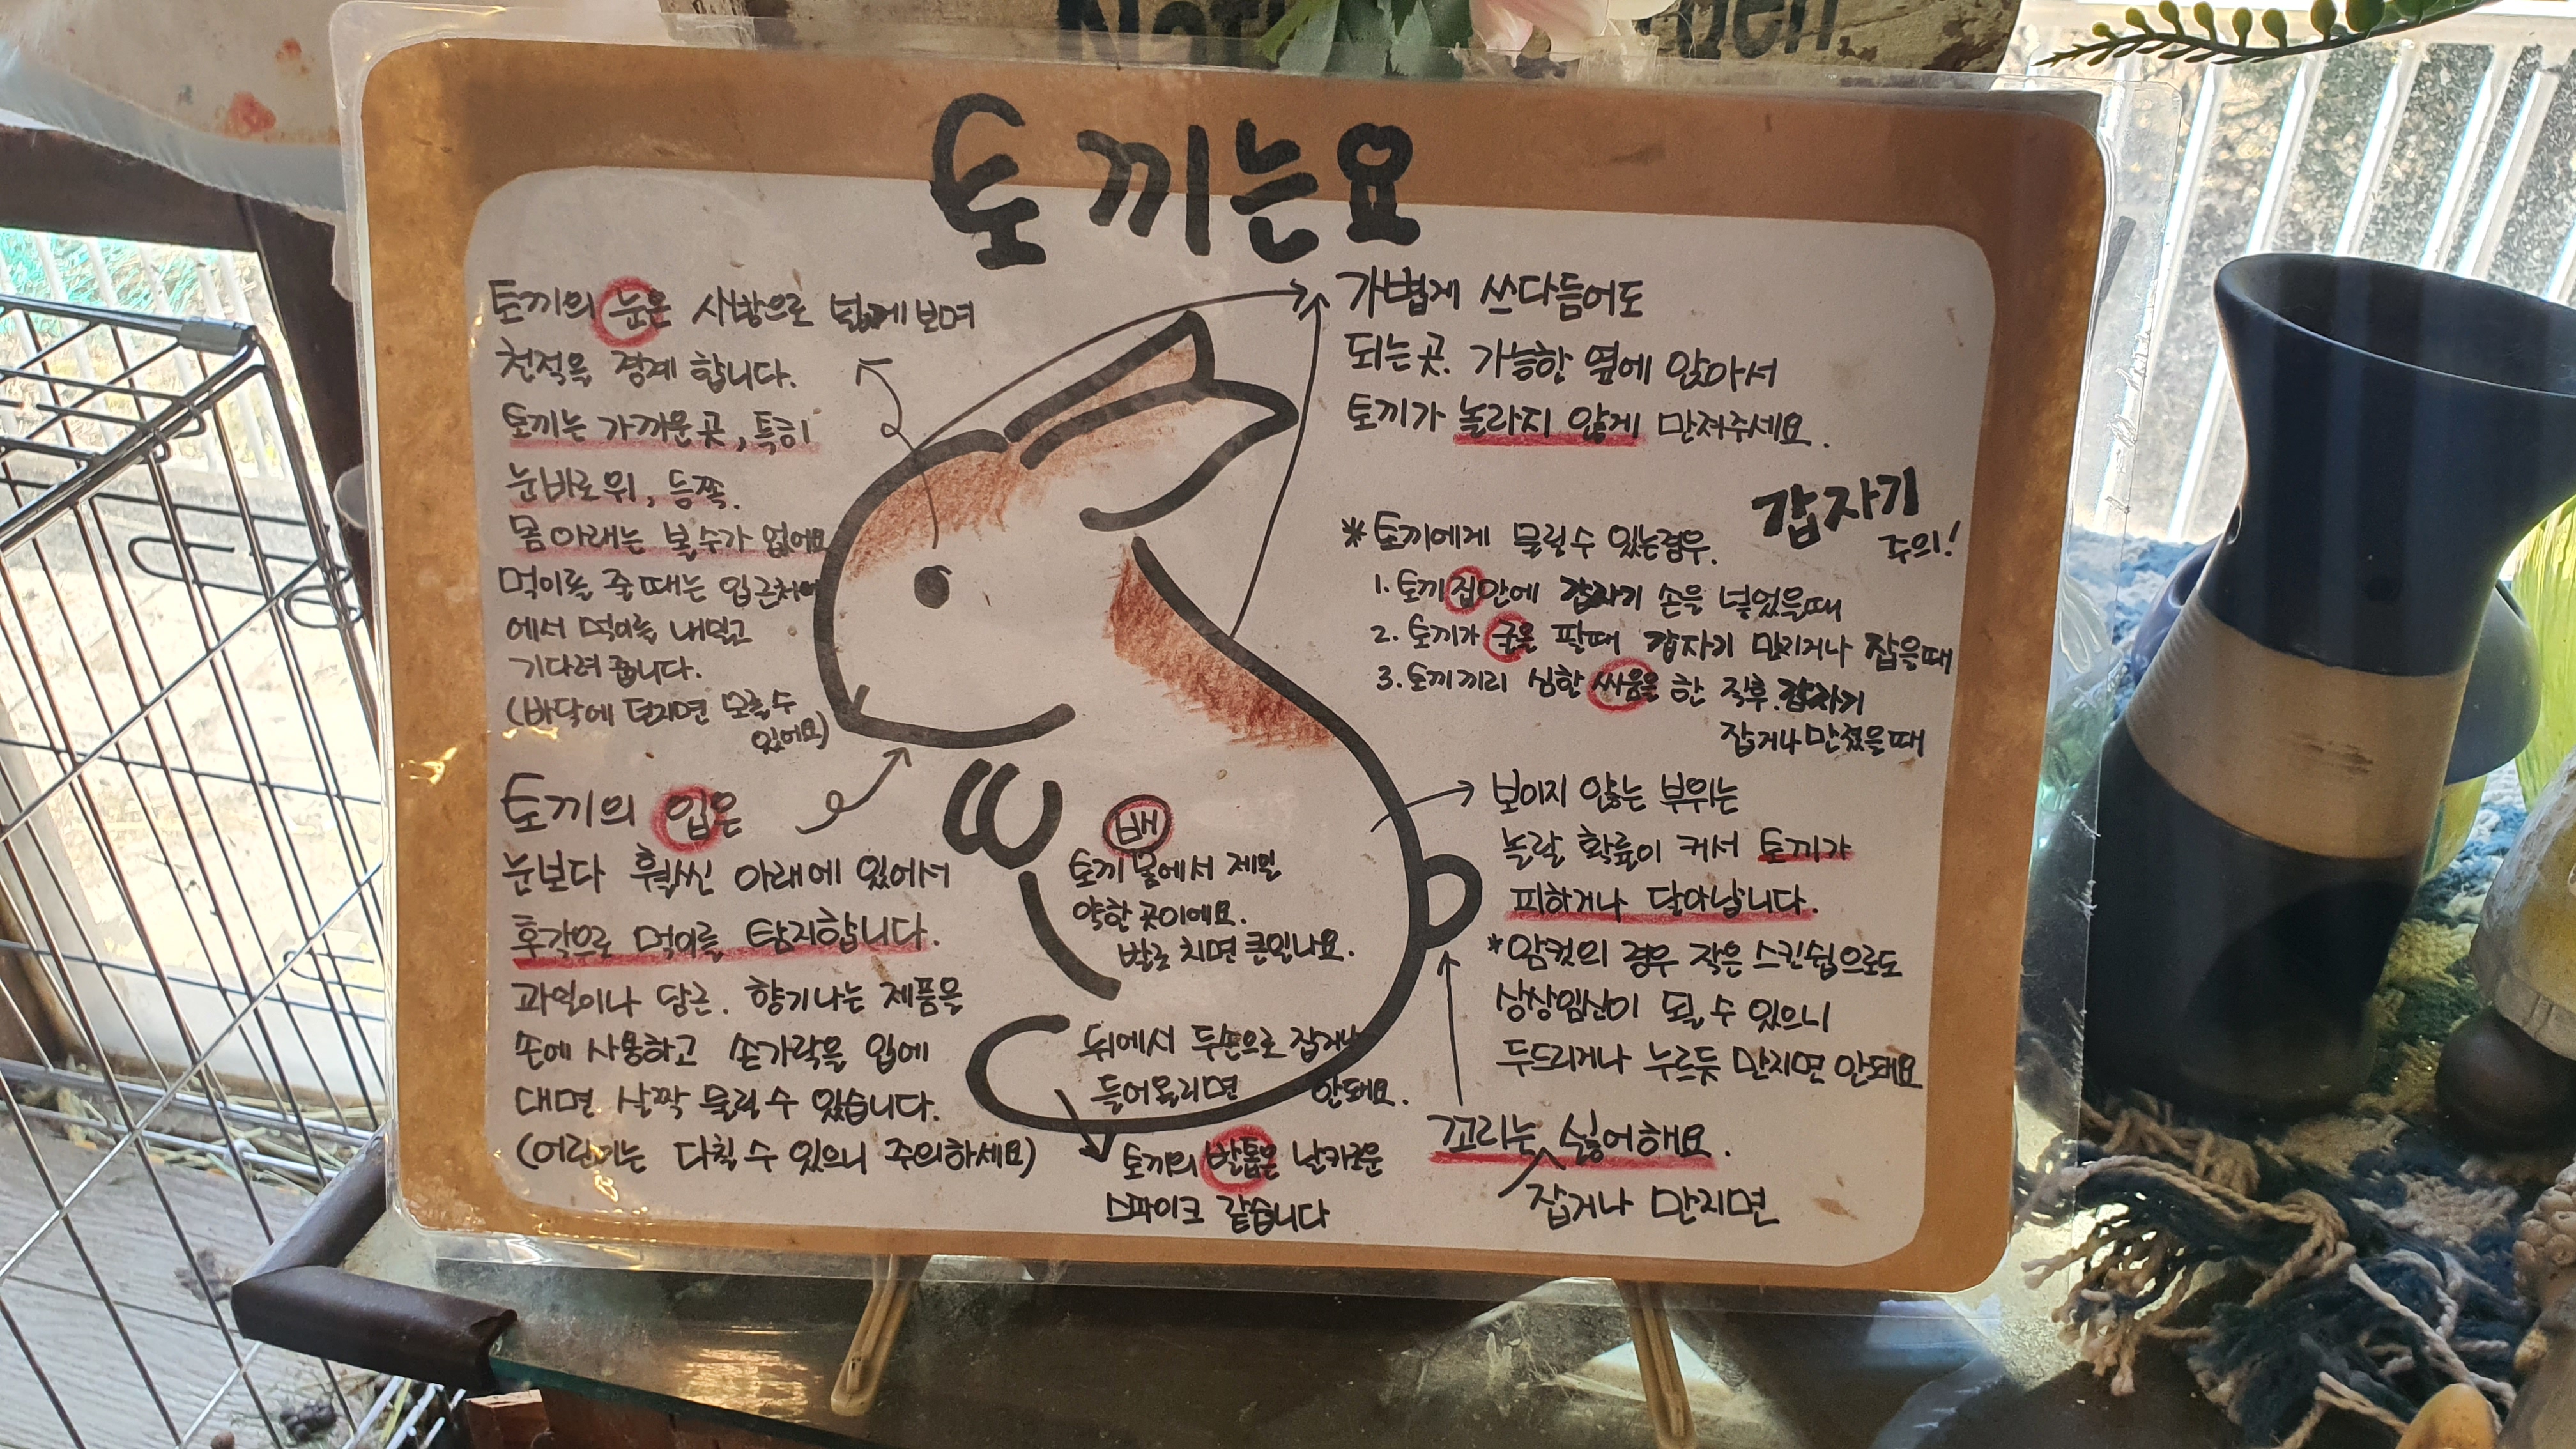 토끼는요
토끼의 눈은 사방으로 넓게 보며
천적을 경계 합니다.
토끼는 가까운 곳, 특히
눈 바로 위, 등쪽.
몸 아래는 볼 수가 없어요
먹이를 줄 때는 입근처
에서 먹이를 내밀고
기다려 줍니다.
(바닥에 던지면 모를 수
있어요)
토끼의 입은
눈보다 훨씬 아래에 있어서
후각으로 먹이를 탐지합니다.
과일이나 당근. 향기나는 제품을
손에 사용하고 손가락을 입에
대면 살짝 물릴 수 있습니다.
(어린이는 다칠 수 있으니 주의하세요)
배
토끼 몸에서 제일
약한 곳이에요.
발로 치면 큰일나요.
뒤에서 두손으로 잡거나
들어올리면 안돼요.
토끼의 발톱은 날카로운
스파이크 같습니다
가볍게 쓰다듬어도
되는 곳. 가능한 옆에 앉아서
토끼가 놀라지 않게 만져주세요.
갑자기
주의!
*토끼에게 물릴 수 있는경우.
1. 토끼 집안에 갑자기 손을 넣었을때
2. 토끼가 굴을 팔때 갑자기 만지거나 잡을때
3. 토끼끼리 심한 싸움을 한 직후. 갑자기
잡거나 만졌을때
보이지 않는 부위는
놀랄 확률이 커서 토끼가
피하거나 달아납니다.
*암컷의 경우 작은 스킨쉽으로도
상상임신이 될 수 있으니
두드리거나 누르듯 만지면 안돼요
꼬리는 싫어해요.
잡거나 만지면